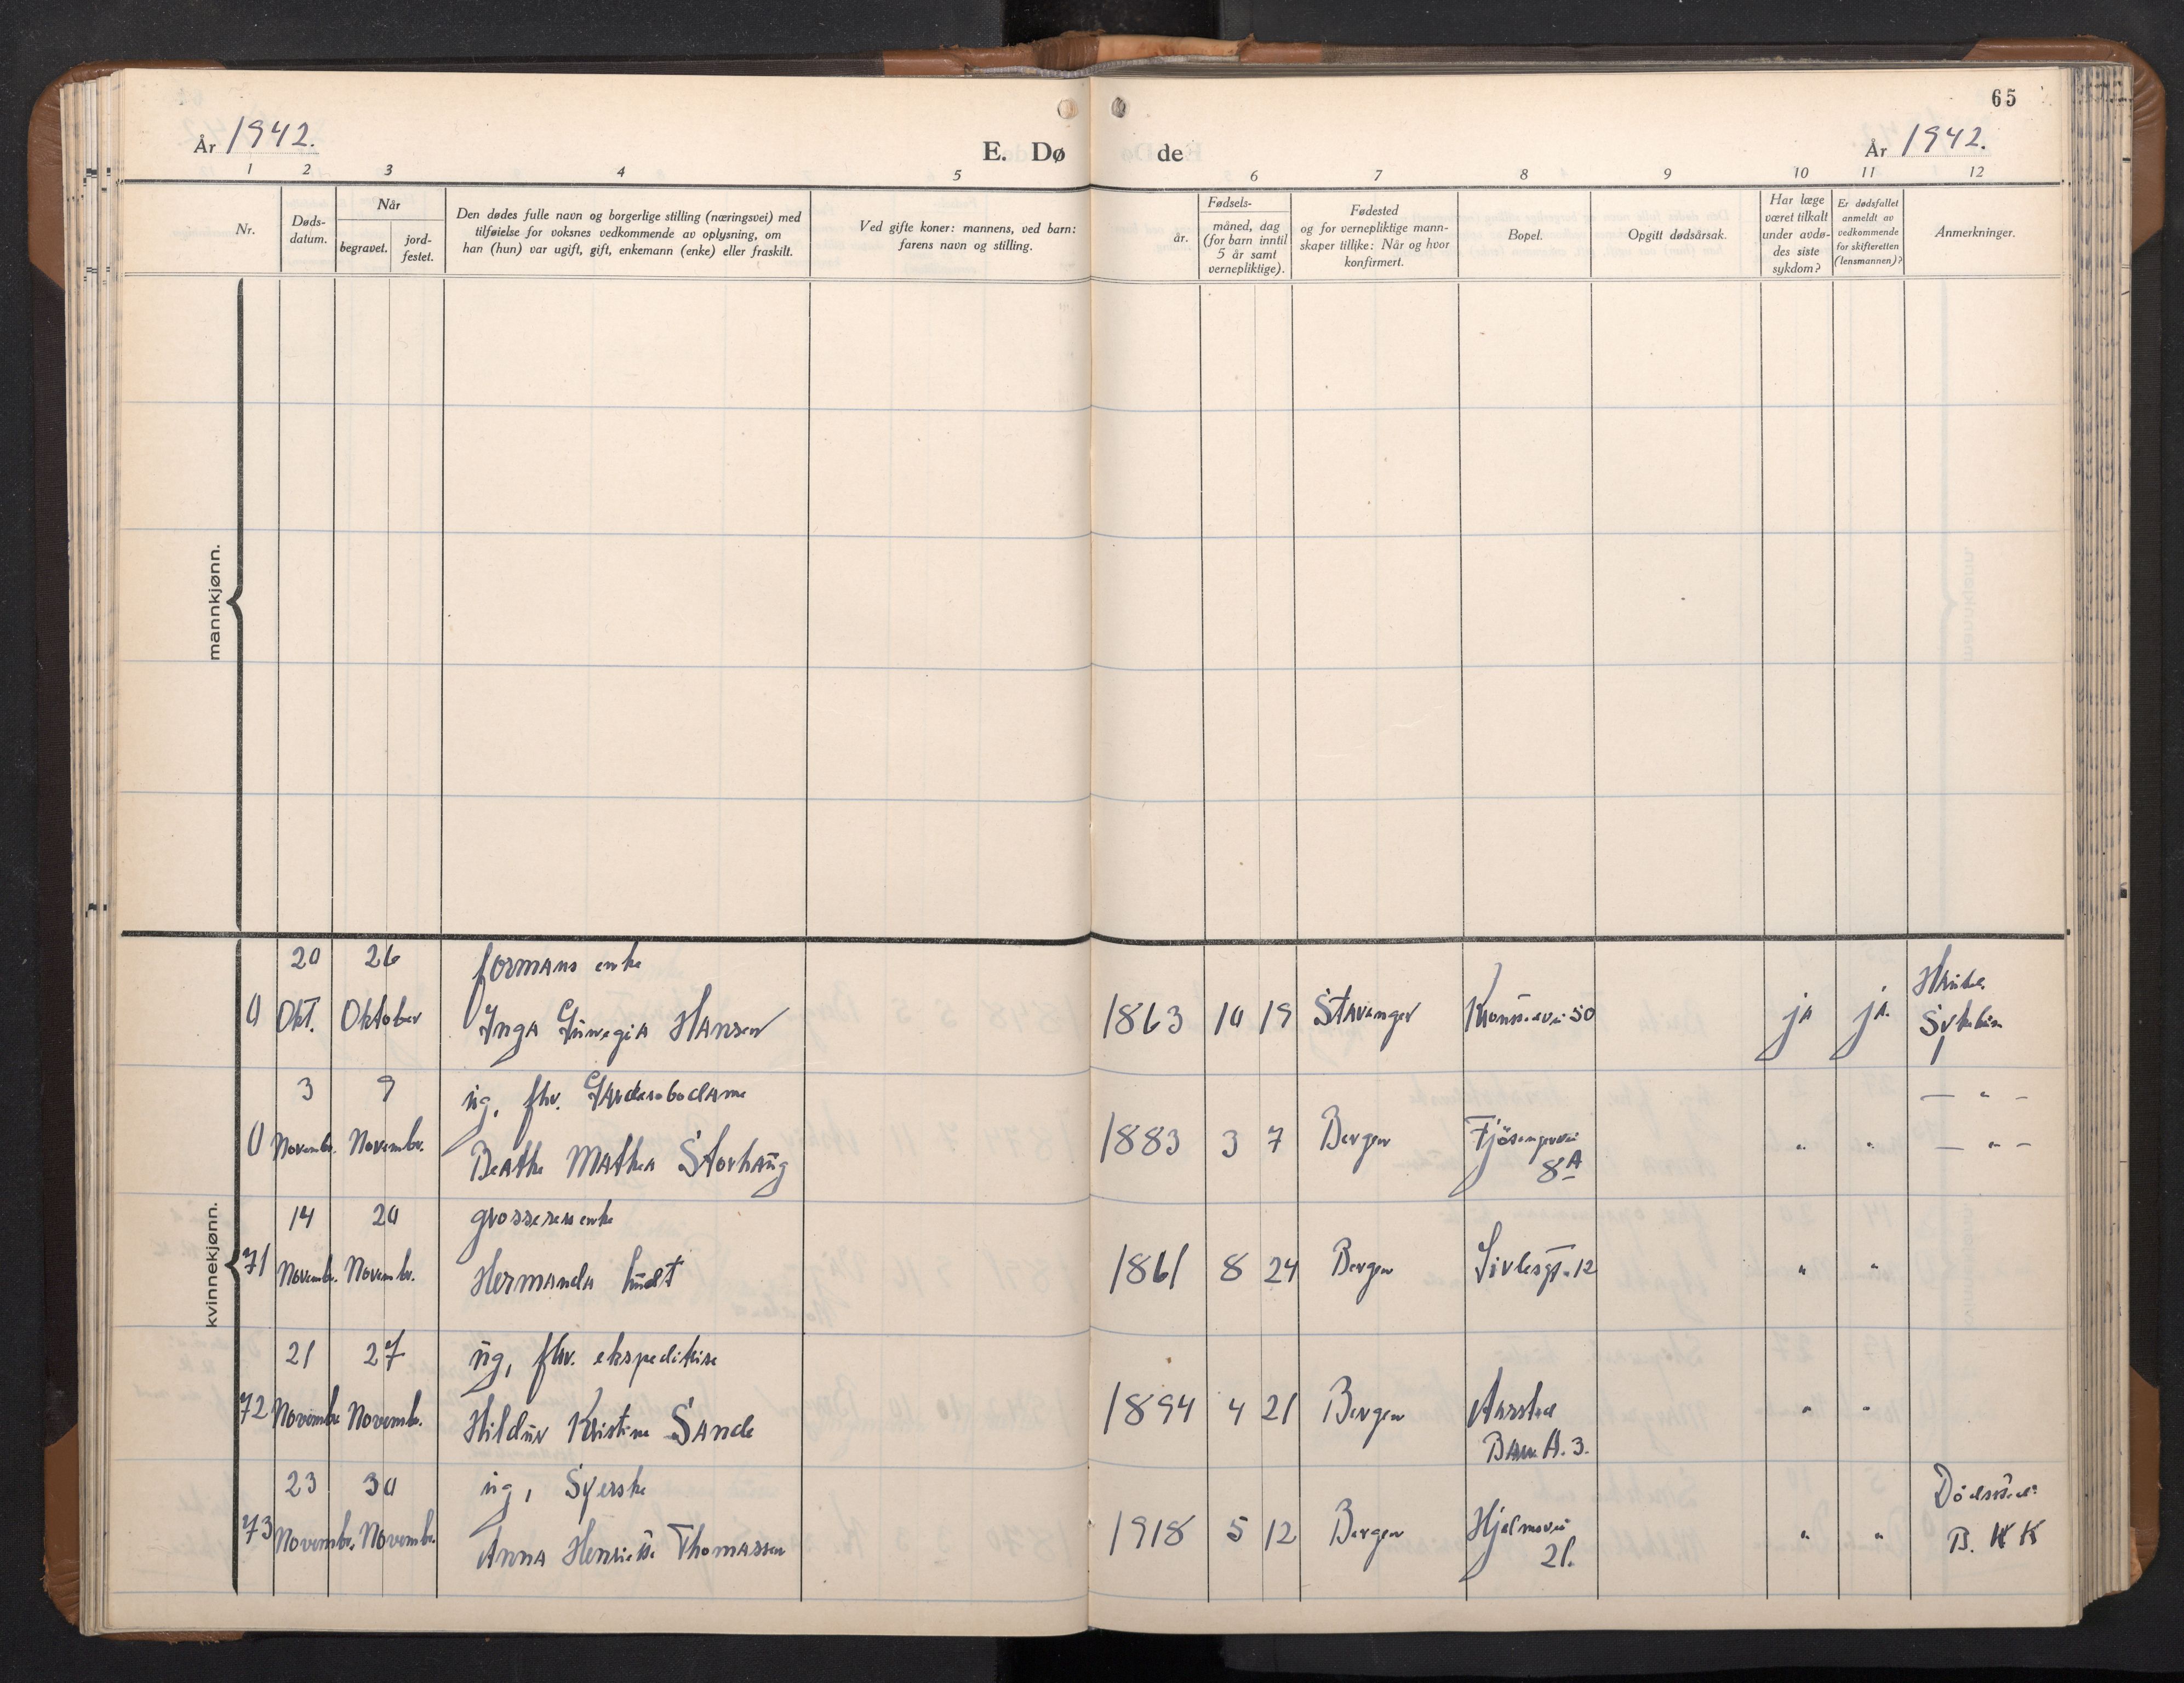 65
År 1942.
E. Dø de
År 1942.
1 2 3 4 5 6 7 8 9 10 11 12
Nr.
Døds-
datum.
Når
begravet.
jord-
festet.
Den dødes fulle navn og borgerlige stilling (næringsvei) med
tilføielse for voksnes vedkommende av oplysning, om
han (hun) var ugift, gift, enkemann (enke) eller fraskilt.
Ved gifte koner: mannens, ved barn:
farens navn og stilling.
Fødsels-
år.
måned, dag
(for barn inntil
5 år samt
vernepliktige).
Fødested
og for vernepliktige mann-
skaper tillike: Når og hvor
konfirmert.
Bopel.
Opgitt dødsårsak.
Har læge
været tilkalt
under avdø-
des siste
sykdom?
Er dødsfallet
anmeldt av
vedkommende
for skifteretten
(lensmannen)?
Anmerkninger.
mannkjønn.
kvinnekjønn.
20 26 formans enke
0 Okt. Oktober Inga Hansen 1863 10 19 Stavanger 50 ja ja.
3 9 ug. fhv. Garderobedame — " —
0 Novembr. Novembr. Beathe Mathea Storhaug 1883 3 7 Bergen Fjøsangervei " " — " —
8A
14 20 grosserers enke
71 Novembr. Novembr. Hermanda 1861 8 24 Bergen Sivlesgt. 12 " "
21 27 ug, fhv. ekspeditrise
72 Novembr. Novembr. Hildur Kristine Sande 1894 4 21 Bergen Aarstad " "
A. 3.
23 30 ug, Syerske
73 Novembr. Novembr. Anna Henriette Thomassen 1918 5 12 Bergen Hjelmsvei " "
21. B. K K